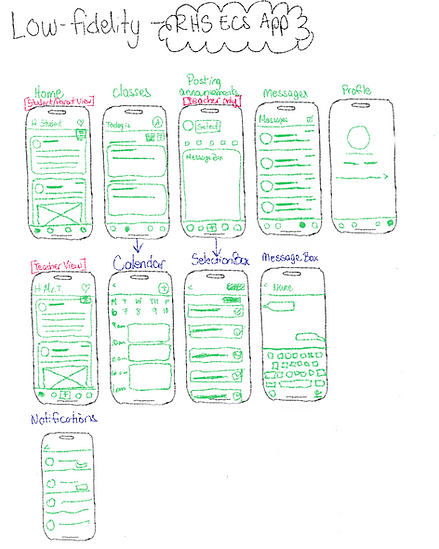 Low-fidelity - RHS ECS App
Home
[Student/Parent View]
Classes
Posting
announcements
[Teacher Only]
Messages
Profile
Hi Student
Today is
Select
Message Box
Messages
[Teacher View]
Calendar
Selection Box
Message Box
Hi Mr. T.
M T W TH F
6 7 8 9 10
9 am
10 am
< Name
Notifications